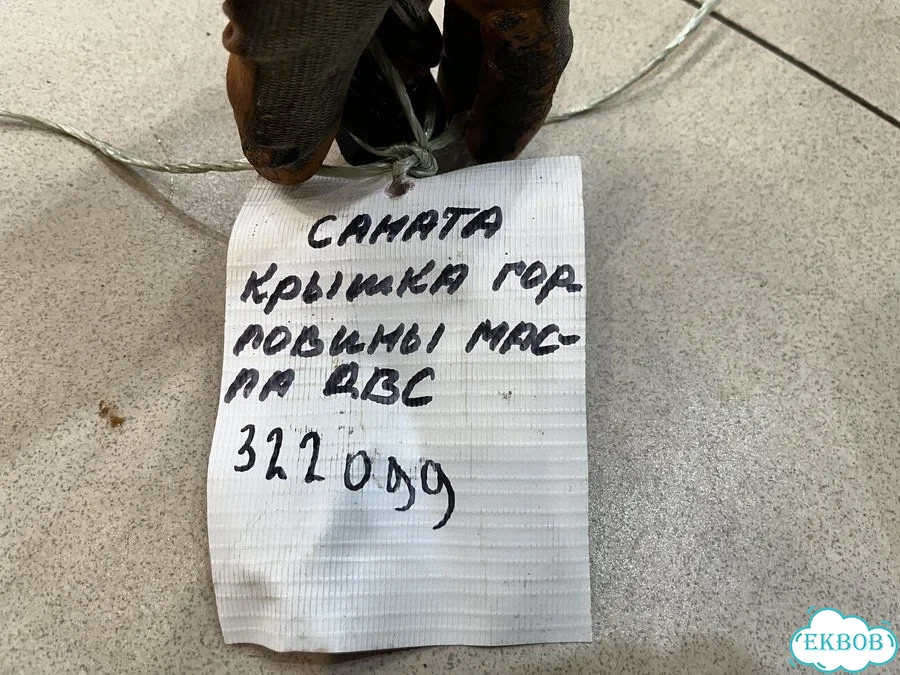 САНАТА
КРЫШКА ГОР-
ЛОВИНЫ МАС-
ЛА ДВС
322099
EKBOB